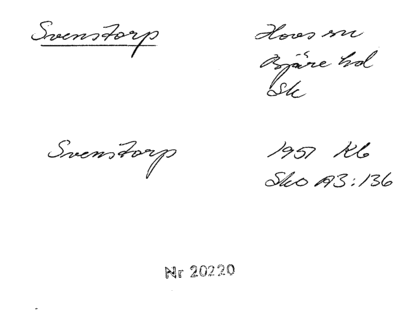 Svenstorp
Hovs sn
Bjäre hd
Sk
Svenstorp
1951 Kb
Sko A3:136
Nr 20220